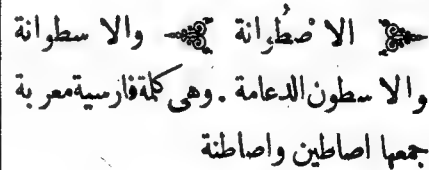 الاصْطُرانة والاسطوانة
والاسطون الدعامة . وهى كلة فارسية معربة
جمعها اصاطين واصاطنة